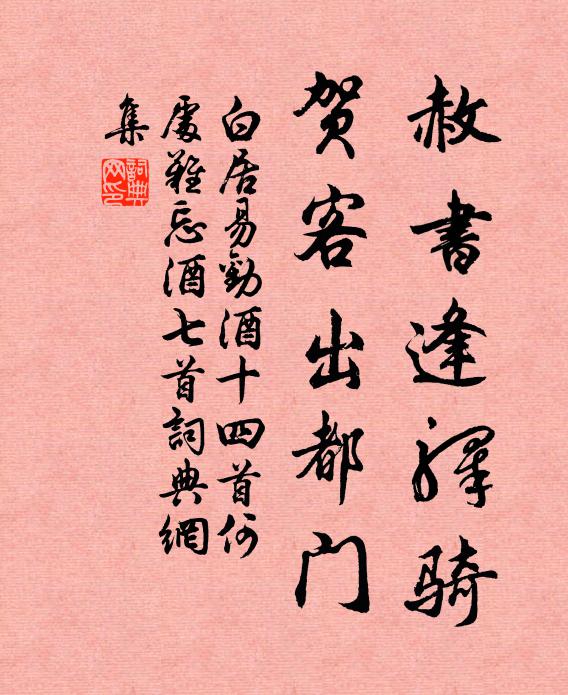 赦書逢驛騎
賀客出都門
白居易勸酒十四首何
處難忘酒七首詞典網
集
詞典
网印